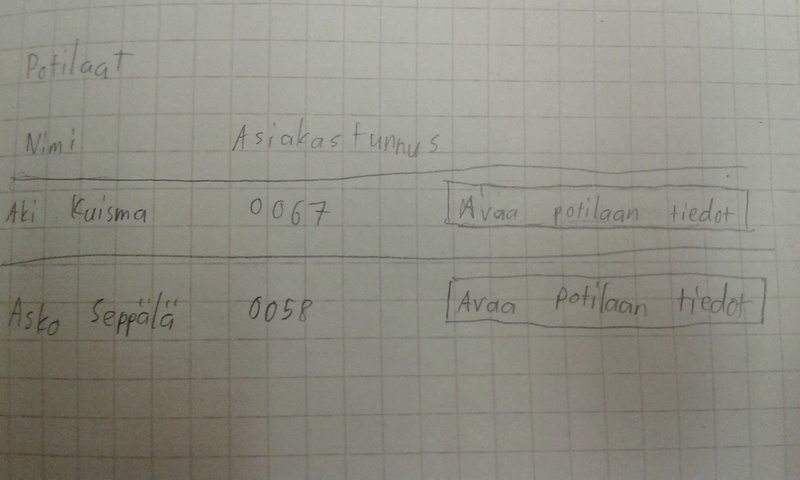 Potilaat
Nimi Asiakastunnus
Aki Kuisma 0067 Avaa potilaan tiedot
Asko Seppälä 0058 Avaa potilaan tiedot